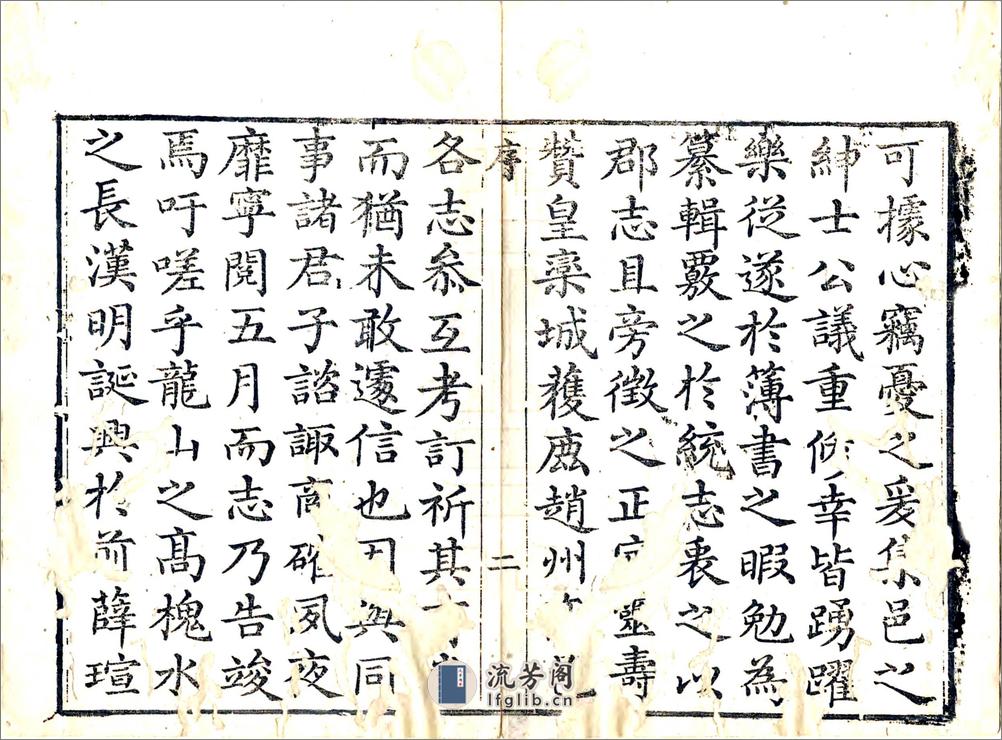 可據心竊憂之爰集邑之
紳士公議重修幸皆踴躍
樂從遂於薄書之暇勉為
纂輯覈之於統志衷之以
郡志且旁徵之正定靈壽
贊皇欒城獲鹿趙州
序
二
各志叅互考訂祈其
而猶未敢遽信也因與同
事諸君子諮諏商確夙夜
靡寧閱五月而志乃告竣
焉吁嗟乎龍山之高槐水
之長漢明誕興於前薛瑄
流芳阁
lfglib.cn